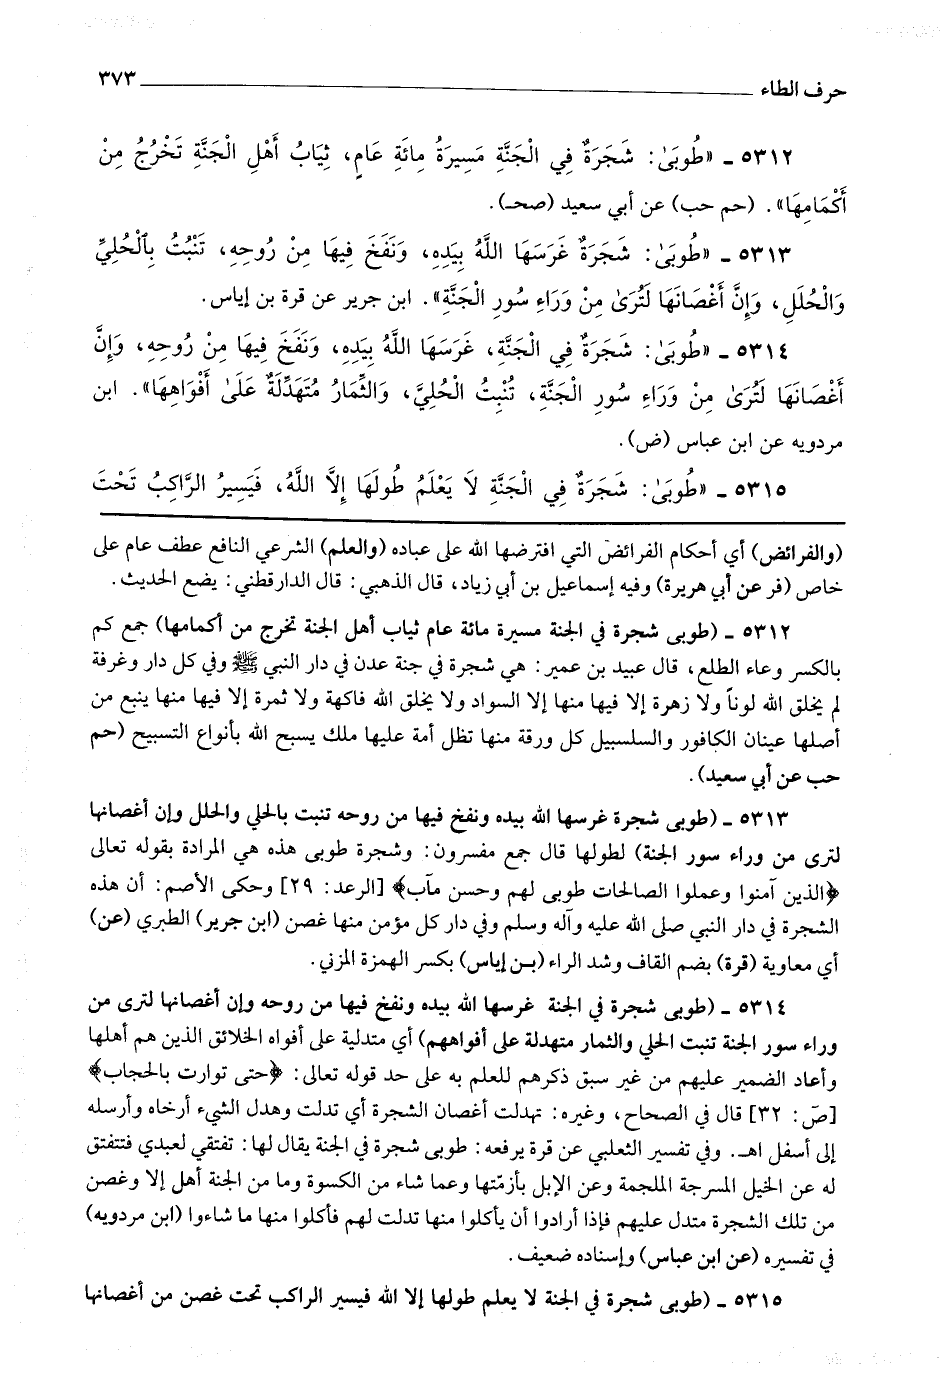 حرف الطاء ٣٧٣
٥٣١٢ ـ «طُوبَىٰ: شَجَرَةٌ فِي الْجَنَّةِ مَسِيرَةُ مِائَةِ عَامٍ، ثِيَابُ أَهْلِ الْجَنَّةِ تَخْرُجُ مِنْ
أَكْمَامِهَا». (حم حب) عن أبي سعيد (صحـ).
٥٣١٣ ـ «طُوبَىٰ: شَجَرَةٌ غَرَسَهَا اللَّهُ بِيَدِهِ، وَنَفَخَ فِيهَا مِنْ رُوحِهِ، تَنْبُتُ بِالْحُلِيِّ
وَالْحُلَلِ، وَإِنَّ أَغْصَانَهَا لَتُرَىٰ مِنْ وَرَاءِ سُورِ الْجَنَّةِ». ابن جرير عن قرة بن إياس.
٥٣١٤ ـ «طُوبَىٰ: شَجَرَةٌ فِي الْجَنَّةِ، غَرَسَهَا اللَّهُ بِيَدِهِ، وَنَفَخَ فِيهَا مِنْ رُوحِهِ، وَإِنَّ
أَغْصَانَهَا لَتُرَىٰ مِنْ وَرَاءِ سُورِ الْجَنَّةِ، تُنْبِتُ الْحُلِيَّ، وَالثِّمَارُ مُتَهَدِّلَةٌ عَلَىٰ أَفْوَاهِهَا». ابن
مردويه عن ابن عباس (ض).
٥٣١٥ ـ «طُوبَىٰ: شَجَرَةٌ فِي الْجَنَّةِ لَا يَعْلَمُ طُولَهَا إِلَّا اللَّهُ، فَيَسِيرُ الرَّاكِبُ تَحْتَ
(والفرائض) أي أحكام الفرائض التي افترضها الله على عباده (والعلم) الشرعي النافع عطف عام على
خاص (فر عن أبي هريرة) وفيه إسماعيل بن أبي زياد، قال الذهبي: قال الدارقطني: يضع الحديث.
٥٣١٢ ـ (طوبى شجرة في الجنة مسيرة مائة عام ثياب أهل الجنة تخرج من أكمامها) جمع كم
بالكسر وعاء الطلع، قال عبيد بن عمير: هي شجرة في جنة عدن في دار النبي ﷺ وفي كل دار وغرفة
لم يخلق الله لوناً ولا زهرة إلا فيها منها إلا السواد ولا يخلق الله فاكهة ولا ثمرة إلا فيها منها ينبع من
أصلها عينان الكافور والسلسبيل كل ورقة منها تظل أمة عليها ملك يسبح الله بأنواع التسبيح (حم
حب عن أبي سعيد).
٥٣١٣ ـ (طوبى شجرة غرسها الله بيده ونفخ فيها من روحه تنبت بالحلي والحلل وإن أغصانها
لترى من وراء سور الجنة) لطولها قال جمع مفسرون: وشجرة طوبى هذه هي المرادة بقوله تعالى
﴿الذين آمنوا وعملوا الصالحات طوبى لهم وحسن مآب﴾ [الرعد: ٢٩] وحكى الأصم: أن هذه
الشجرة في دار النبي صلى الله عليه وآله وسلم وفي دار كل مؤمن منها غصن (ابن جرير) الطبري (عن)
أبي معاوية (قرة) بضم القاف وشد الراء (بـن إياس) بكسر الهمزة المزني.
٥٣١٤ ـ (طوبى شجرة في الجنة غرسها الله بيده ونفخ فيها من روحه وإن أغصانها لترى من
وراء سور الجنة تنبت الحلي والثمار متهدلة على أفواههم) أي متدلية على أفواه الخلائق الذين هم أهلها
وأعاد الضمير عليهم من غير سبق ذكرهم للعلم به على حد قوله تعالى: ﴿حتى توارت بالحجاب﴾
[صَ: ٣٢] قال في الصحاح، وغيره: تهدلت أغصان الشجرة أي تدلت وهدل الشيء أرخاه وأرسله
إلى أسفل اهـ. وفي تفسير الثعلبي عن قرة يرفعه: طوبى شجرة في الجنة يقال لها: تفتقي لعبدي فتتفتق
له عن الخيل المسرجة الملجمة وعن الإبل بأزمّتها وعما شاء من الكسوة وما من الجنة أهل إلا وغصن
من تلك الشجرة متدل عليهم فإذا أرادوا أن يأكلوا منها تدلت لهم فأكلوا منها ما شاءوا (ابن مردويه)
في تفسيره (عن ابن عباس) وإسناده ضعيف.
٥٣١٥ ـ (طوبى شجرة في الجنة لا يعلم طولها إلا الله فيسير الراكب تحت غصن من أغصانها